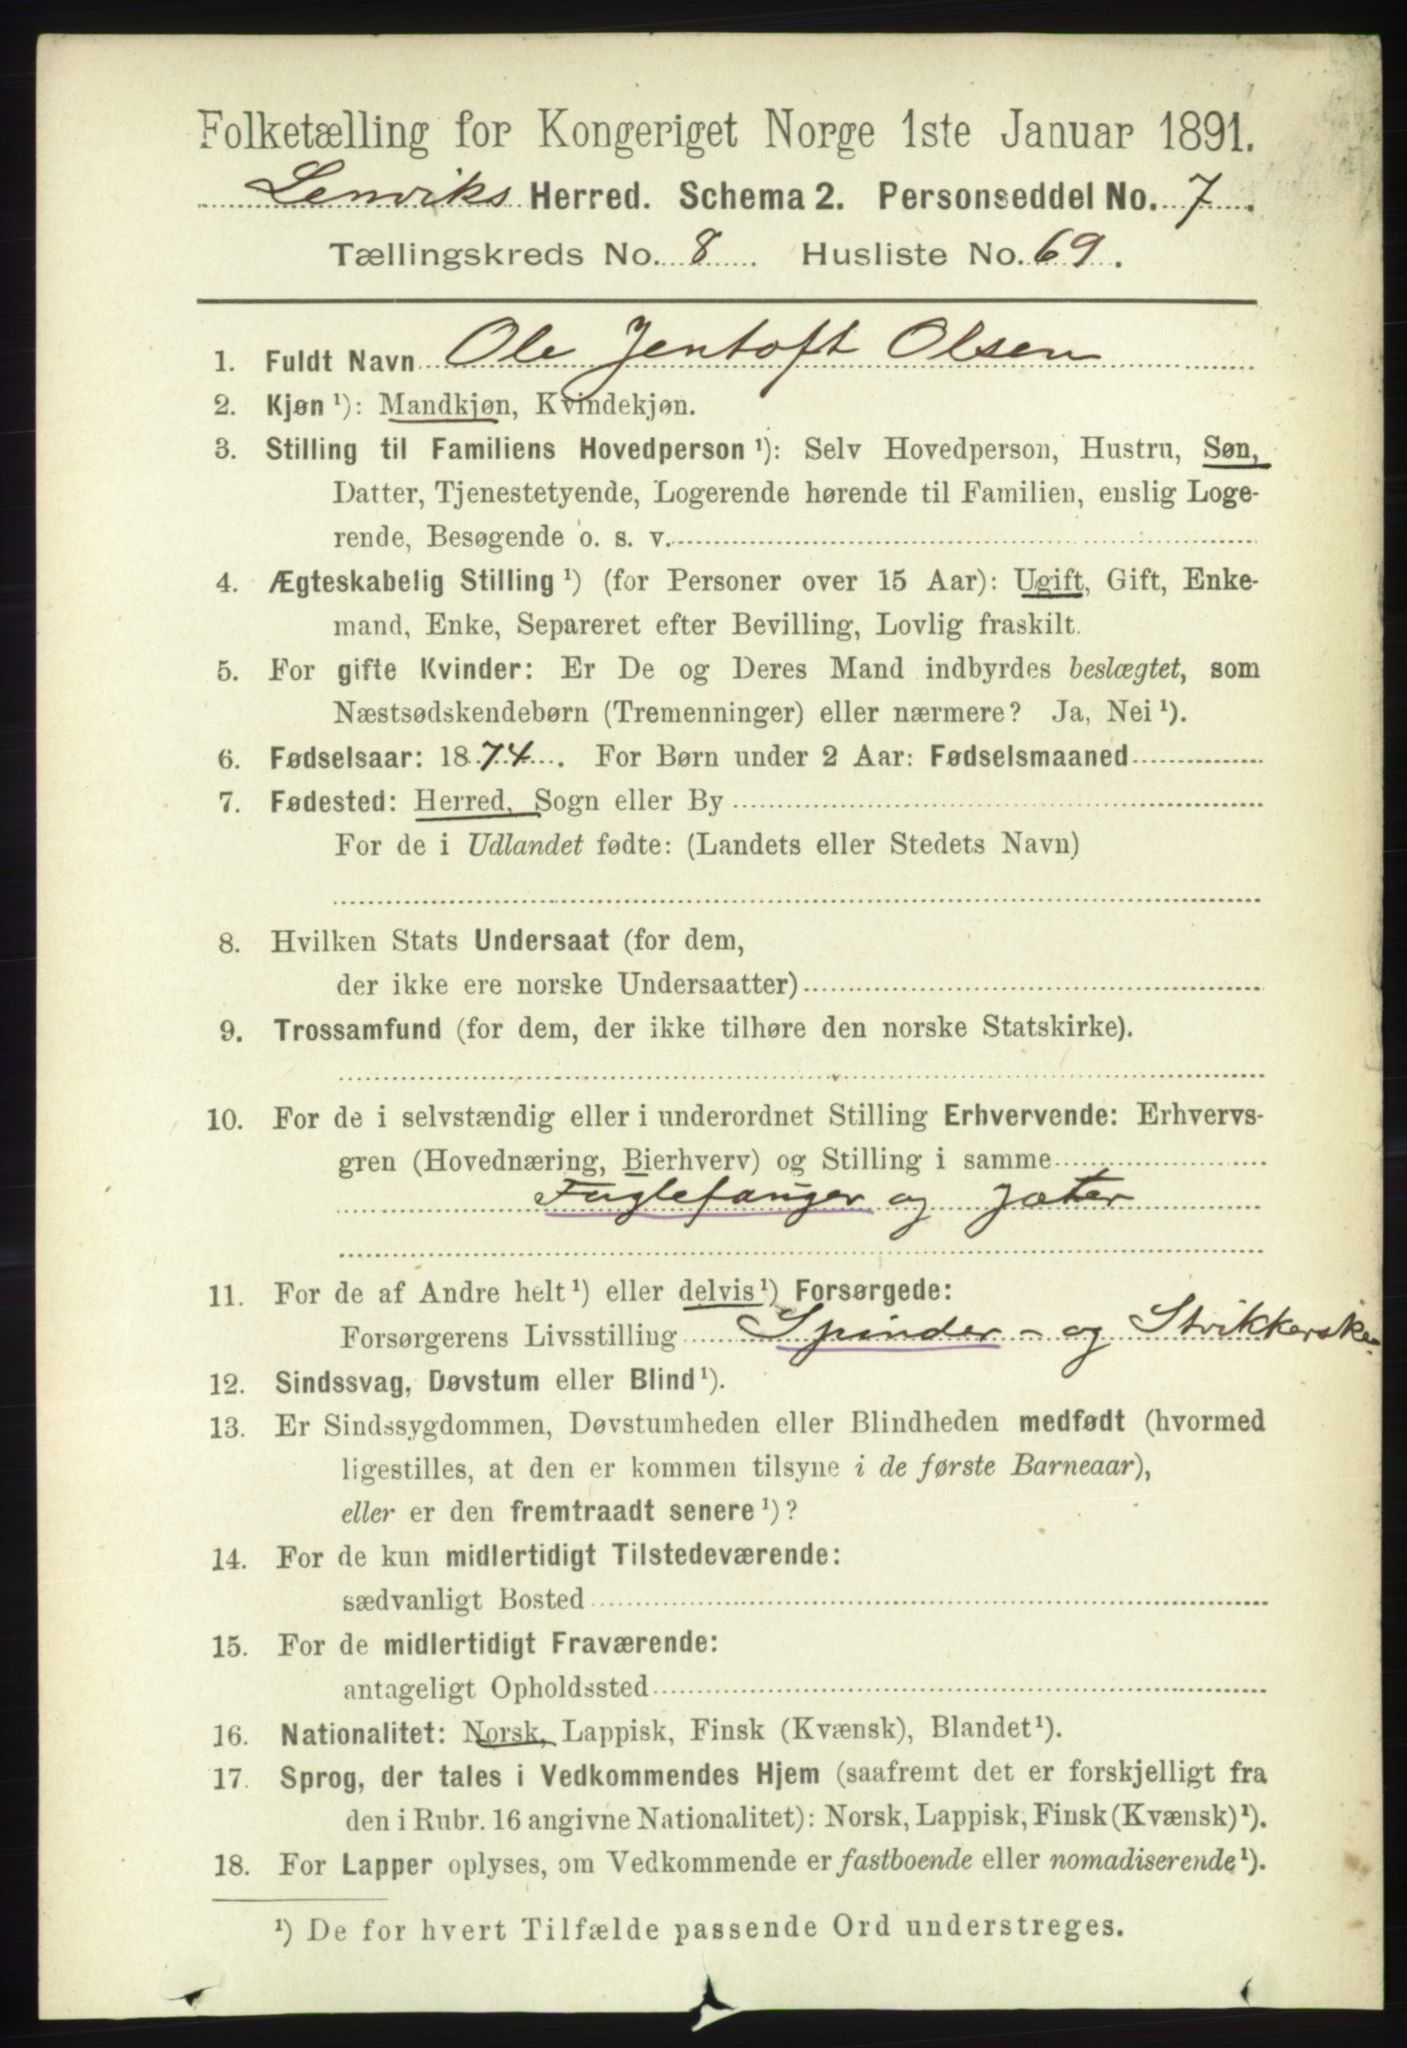 Folketælling for Kongeriget Norge 1ste Januar 1891.
Lenviks Herred. Schema 2. Personseddel No. 7.
Tællingskreds No. 8. Husliste No. 69.
1. Fuldt Navn Ole Jentoft Olsen
2. Kjøn ¹): Mandkjøn, Kvindekjøn.
3. Stilling til Familiens Hovedperson ¹): Selv Hovedperson, Hustru, Søn,
Datter, Tjenestetyende, Logerende hørende til Familien, enslig Loge-
rende, Besøgende o. s. v.
4. Ægteskabelig Stilling ¹) (for Personer over 15 Aar): Ugift, Gift, Enke-
mand, Enke, Separeret efter Bevilling, Lovlig fraskilt.
5. For gifte Kvinder: Er De og Deres Mand indbyrdes beslægtet, som
Næstsødskendebørn (Tremenninger) eller nærmere? Ja, Nei ¹).
6. Fødselsaar: 1874. For Børn under 2 Aar: Fødselsmaaned
7. Fødested: Herred, Sogn eller By
For de i Udlandet fødte: (Landets eller Stedets Navn)
8. Hvilken Stats Undersaat (for dem,
der ikke ere norske Undersaatter)
9. Trossamfund (for dem, der ikke tilhøre den norske Statskirke).
10. For de i selvstændig eller i underordnet Stilling Erhvervende: Erhvervs-
gren (Hovednæring, Bierhverv) og Stilling i samme
Fuglefanger og Jæter
11. For de af Andre helt ¹) eller delvis ¹) Forsørgede:
Forsørgerens Livsstilling Spinder- og Strikkerske
12. Sindssvag, Døvstum eller Blind ¹).
13. Er Sindssygdommen, Døvstumheden eller Blindheden medfødt (hvormed
ligestilles, at den er kommen tilsyne i de første Barneaar),
eller er den fremtraadt senere ¹)?
14. For de kun midlertidigt Tilstedeværende:
sædvanligt Bosted
15. For de midlertidigt Fraværende:
antageligt Opholdssted
16. Nationalitet: Norsk, Lappisk, Finsk (Kvænsk), Blandet ¹).
17. Sprog, der tales i Vedkommendes Hjem (saafremt det er forskjelligt fra
den i Rubr. 16 angivne Nationalitet): Norsk, Lappisk, Finsk (Kvænsk) ¹).
18. For Lapper oplyses, om Vedkommende er fastboende eller nomadiserende ¹).
¹) De for hvert Tilfælde passende Ord understreges.